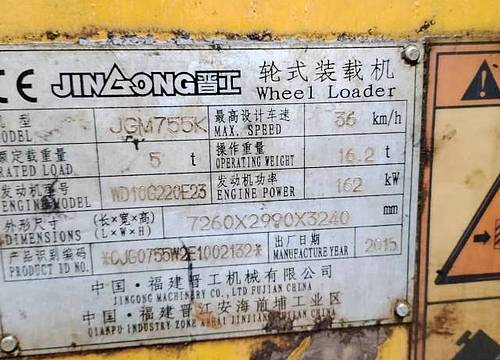 CE JINGONG晋工 轮式装载机
Wheel Loader
型
MODEL JGM755K 最高设计车速 MAX. SPEED 36 km/h
额定载重量 RATED LOAD 5 t 操作重量 OPERATING WEIGHT 16.2 t
发动机型号 ENGINE MODEL WD10G220E23 发动机功率 ENGINE POWER 162 kW
外形尺寸 DIMENSIONS (长×宽×高) (L×W×H) 7260X2990X3240 mm
产品识别编码 PRODUCT ID NO. *CJG0755W2E1002132* 出厂日期 MANUFACTURE YEAR 2015
中国·福建晋工机械有限公司
JINGONG MACHINERY CO., LTD FUJIAN CHINA
中国·福建晋江安海前埔工业区
QIANPU INDUSTRY ZONE ANHAI JINJIANG FUJIAN CHINA